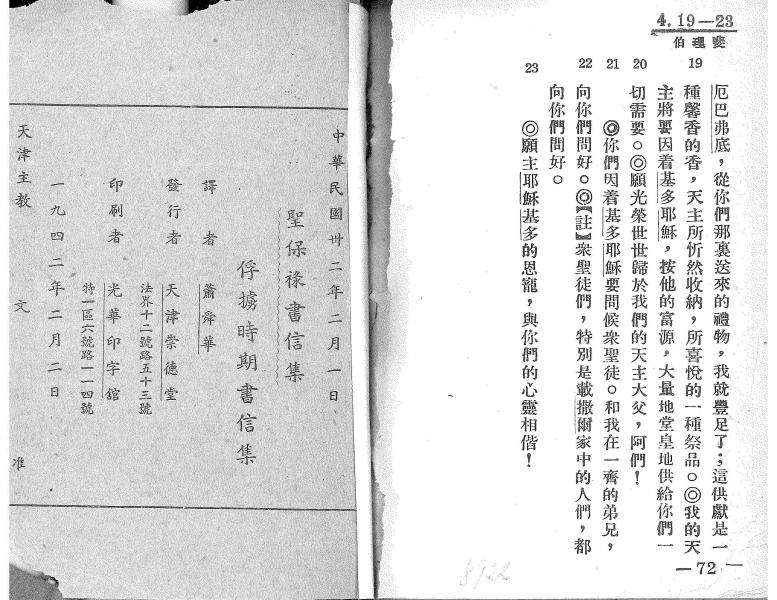 4. 19—23
斐理伯
19
厄巴弗底，從你們那裏送來的禮物，我就豐足了；這供獻是一
種馨香的香，天主所忻然收納，所喜悅的一種祭品。◎我的天
主將要因着基多耶穌，按他的富源，大量地堂皇地供給你們一
20
切需要。◎願光榮世世歸於我們的天主大父，阿們！
21
◎你們因着基多耶穌要問候衆聖徒。和我在一齊的弟兄，
22
向你們問好。◎【註】衆聖徒們，特別是載撒爾家中的人們，都
向你們問好。
23
◎願主耶穌基多的恩寵，與你們的心靈相偕！
—72—
8922
中華民國卅二年二月一日
聖保祿書信集
俘擄時期書信集
譯者 蕭舜華
發行者 天津崇德堂
法界十二號路五十三號
印刷者 光華印字舘
特一區六號路一一四號
一九四二年二月二日
天津主教 文 准